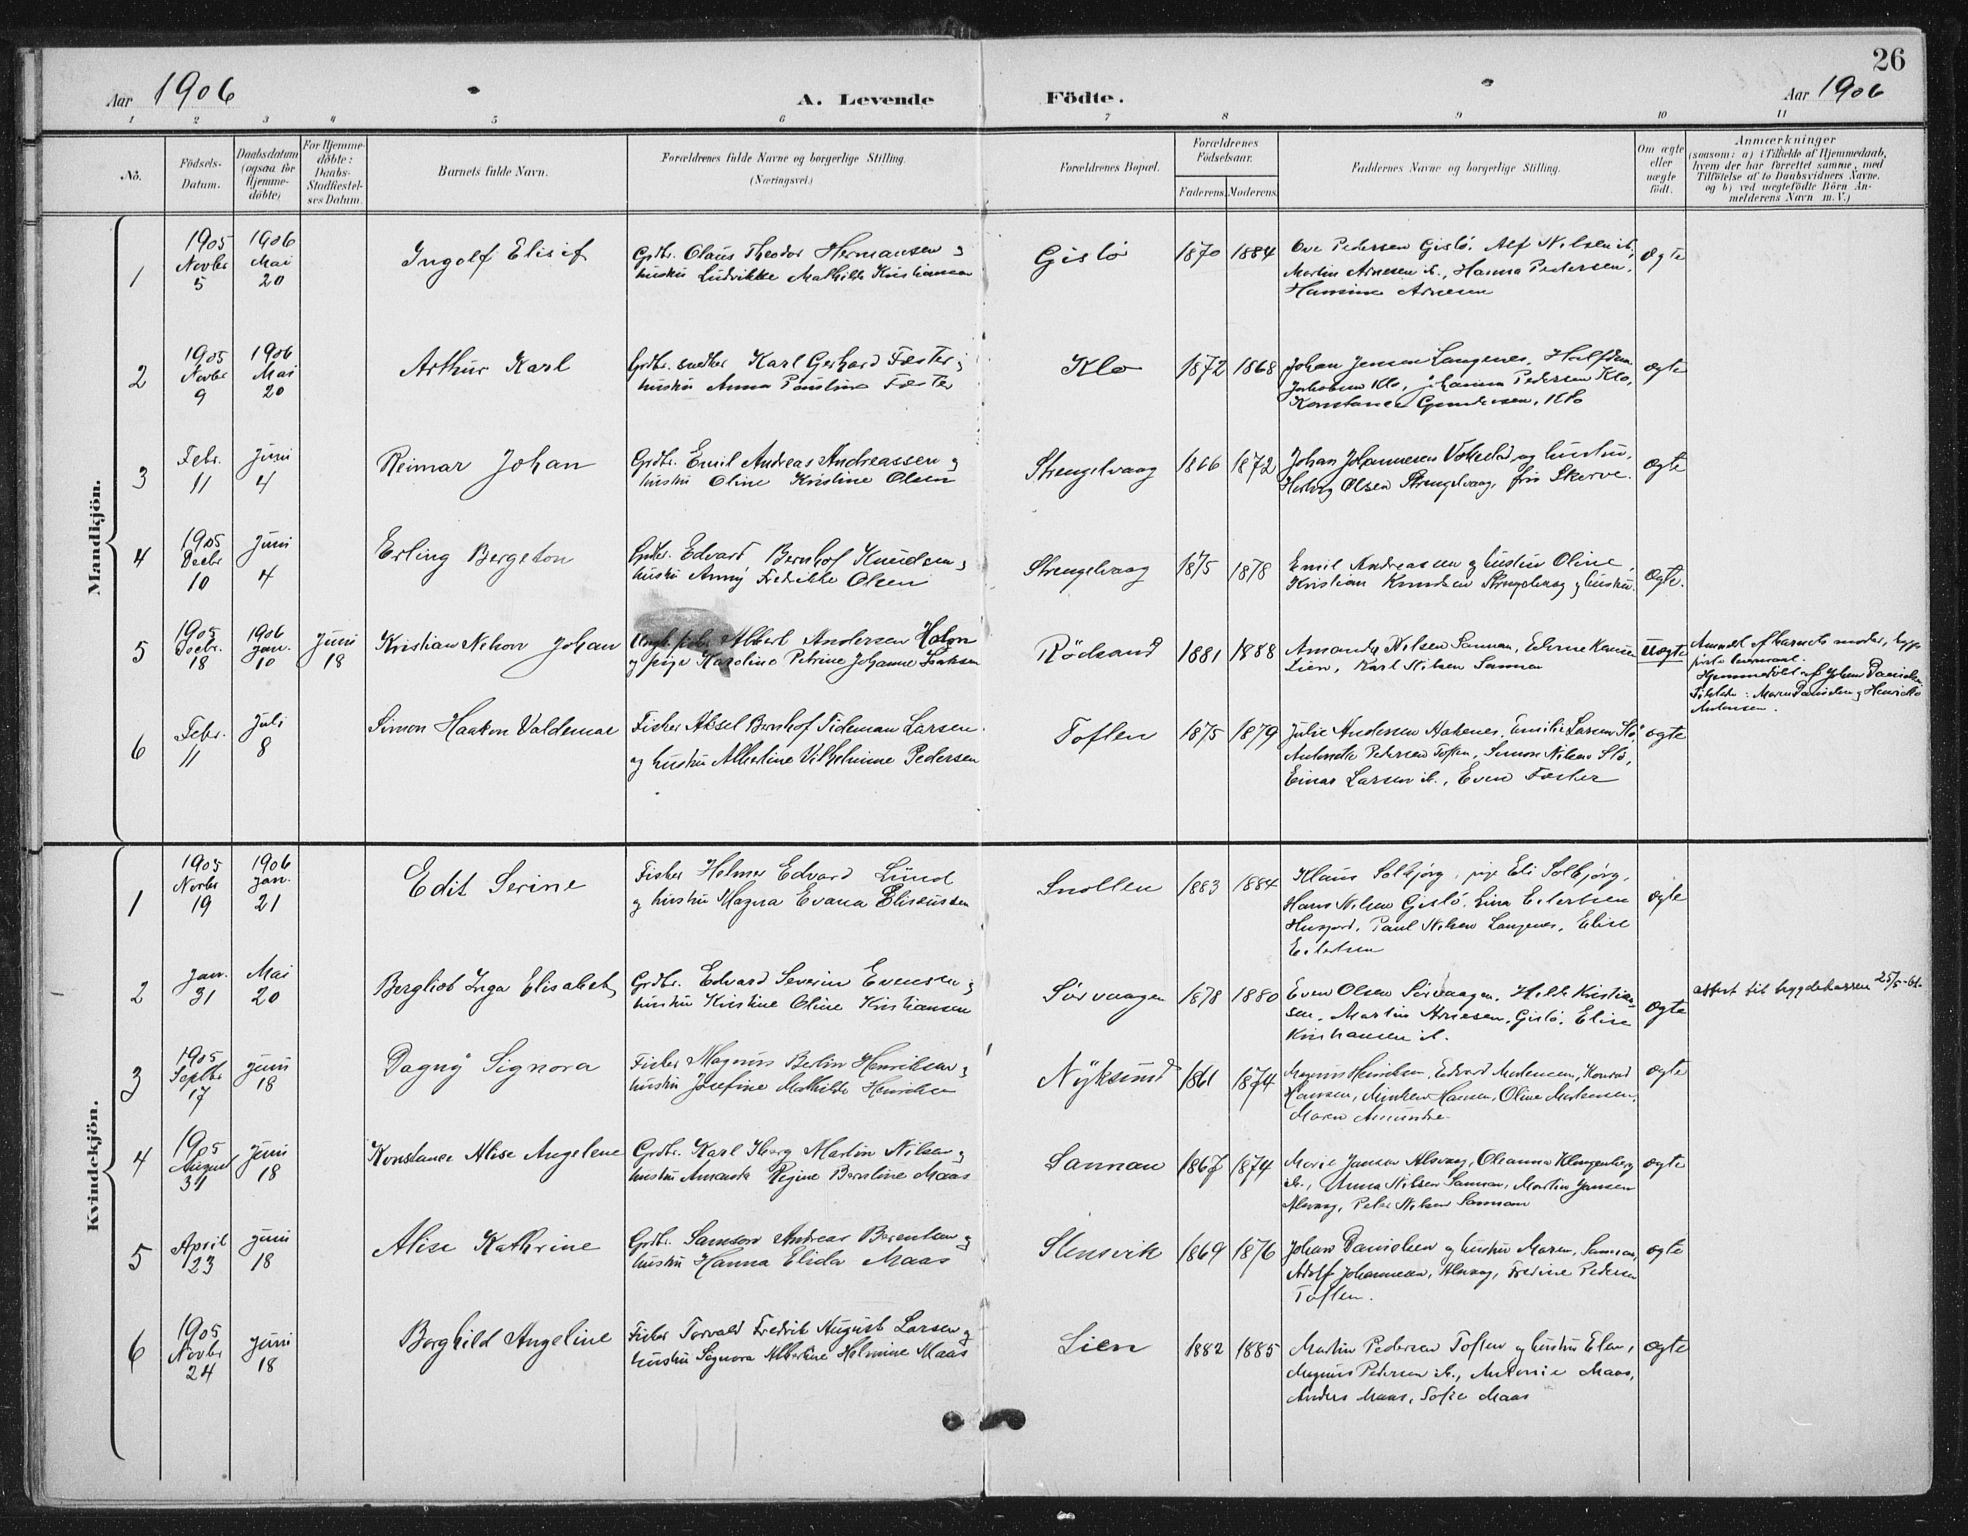 26
Aar 1906
A. Levende Födte.
Aar 1906
1 2 3 4 5 6 7 8 9 10 11
No.
Födsels-Datum.
Daabsdatum (ogsaa for Hjemme-döbte)
For Hjemme-döbte: Daabs-Stadfæstel-ses Datum.
Barnets fulde Navn.
Forældrenes fulde Navne og borgerlige Stilling. (Næringsvei.)
Forældrenes Bopæl.
Forældrenes Födselsaar.
Faderens. Moderens.
Faddernes Navne og borgerlige Stilling.
Om ægte eller uægte födt.
Anmærkninger
(saasom: a) i Tilfælde af Hjemmedaab, hvem der har forrettet samme, med Tilföielse af to Daabsvidners Navne, og b) ved uægtefödte Börn An-melderens Navn m. V.)
Mandkjön.
1 1905 Novbr 5 1906 Mai 20 Ingolf Elisif Grdbr. Olaus Theodor Hermansen og Gislö 1870 1884 Ove Pedersen Gislö, Alf Nilsen ib,
hustru Ludvikke Mathilde Kristiansen Martin Arnesen ib., Hanna Pedersen,
Hansine Arnesen ægte
2 1905 Novbr 9 1906 Mai 20 Arthur Karl Grdbr. snedker Karl Gerhard Fæster og Klo 1872 1868 Johan Jensen Langenes, Halfdan
hustru Anna Pauline Fæster Jakobsen Klo, Johanna Pedersen Klo,
Konstance Gundersen, Klo ægte
3 Febr. 11 Juni 4 Reimar Johan Grdbr. Emil Andreas Andreassen og Strengelvaag 1866 1872 Johan Johannesen og hustru,
hustru Oline Kristine Olsen Olsen Strengelvaag, Skerve. ægte
4 1905 Decbr 10 Juni 4 Erling Bergeton Grdbr. Edvard Bernhof Knudsen og Strengelvaag 1875 1878 Emil Andreassen og hustru Oline,
hustru Anny Fredrikke Olsen Kristian Knudsen Strengelvaag og hustru. ægte.
5 1905 Decbr 18 1906 Jan. 10 Juni 18 Kristian Nehov Johan Albert Andersen Holm Rödsand 1881 1888 Nilsen Sannan, Hansen
og pige Karoline Petrine Johanne Isaksen Lien, Karl Nilsen Sannan uægte Anmeldt af barnets moder,
Hjemmedöbt af Johan Danielsen
Maren Danielsen og
6 Febr. 11 Juli 8 Simon Haakon Valdemar Fisker Aksel Bernhof Tideman Larsen Toften 1875 1879 Julie Andersen Haknes, Emilie Larsen Stö,
og hustru Albertine Vilhelmine Pedersen Antonette Pedersen Toften, Simon Nilsen Stö,
Einar Larsen ib., Even Fæster ægte
Kvindekjön.
1 1905 Novbr 19 1906 Jan. 21 Edit Serine Fisker Helmer Edvard Lund Smollen 1883 1884 Klaus Solbjörg, pige Eli Solbjörg,
og hustru Magna Evana Eliseussen Hans Nilsen Gislö, Lina Eilertsen
Paul Nilsen Langenes, Elise
Eilertsen ægte
2 Jan. 31 Mai 20 Bergliot Inga Elisabet Grdbr. Edvard Severin Evensen og Sörvaagen 1878 1880 Even Olsen Sörvaagen, Hilda Kristian-
hustru Kristine Oline Kristiansen sen, Martin Arnesen, Gislö, Elise
Kristiansen ib. ægte attest til trygdekassen 25/5-61.
3 1905 Septbr 17 Juni 18 Dagny Signora Fisker Magnus Berlin Henriksen og Nyksund 1861 1874 Magnus Henriksen, Edvard Konrad
hustru Josefine Mathilde Henriksen Hansen, Hansen, Oline Mortensen,
Maren ægte
4 1905 August 31 Juni 18 Konstance Alise Angelene Grdbr. Karl Iberg Martin Nilsen og Sannan 1867 1874 Marie Jansen Alsvaag, Oleanna Klingenberg
hustru Amanda Regine Berntine Maas ib., Anna Nilsen Sannan, Martin Jansen
Alsvaag, Peter Nilsen Sannan ægte
5 April 23 Juni 18 Alise Kathrine Grdbr. Samson Andreas Berentsen og Stensvik 1869 1876 Johan Danielsen og hustru Maren, Sannan,
hustru Hanna Elida Maas Adolf Johannesen, Alsvaag, Fredine Pedersen
Toften. ægte
6 1905 Novbr 24 Juni 18 Borghild Angeline Fisker Torvald Fredrik August Larsen og Lien 1882 1885 Martin Pedersen Toften og hustru Elen,
hustru Signora Albertine Helmine Maas Magnus Pedersen ib., Antonie Maas,
Anders Maas, Sofie Maas ægte